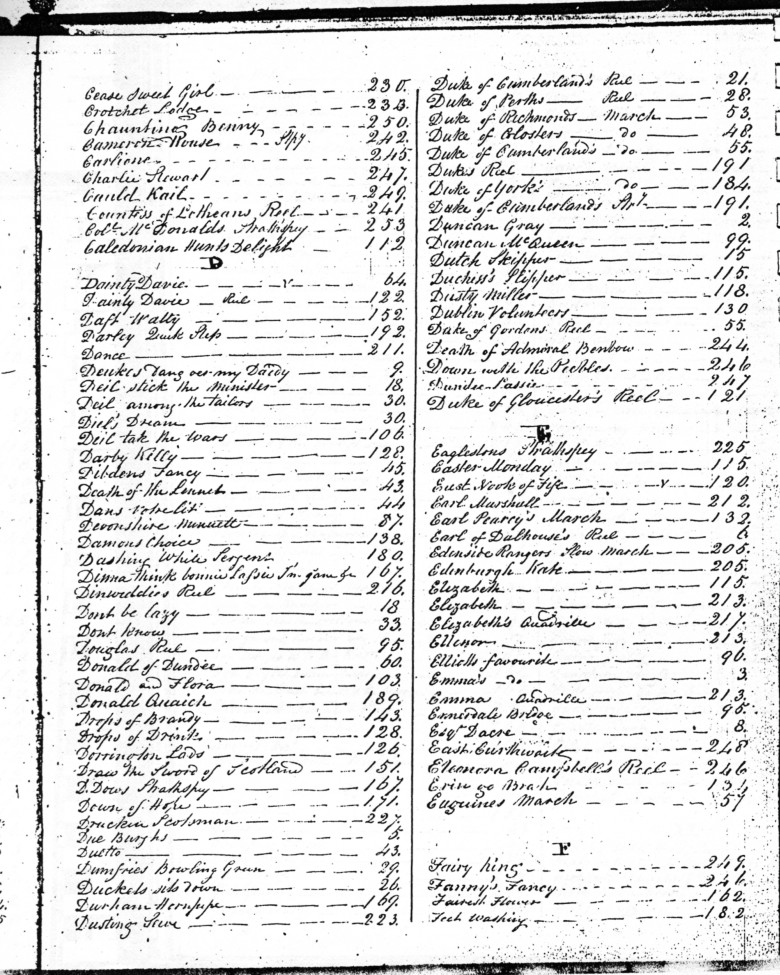 Cease Sweet Girl 230.
Crotchet Lodge 233
Chaunting Benny 250.
Cameron House Spy. 242.
Carlione 245.
Charlie Stewart 247.
Cauld Kail 249.
Countiss of Lotheans Reel 241
Col. McDonalds Strathspey 253
Caledonian Hunts Delight 112
D
Dainty Davie v 64.
Dainty Davie Reel 122.
Daft Watty 152.
Darley Quick Step 192.
Dance 211.
Deukes dang oer my Dady 9.
Deil stick the Minister 18.
Deil among the tailors 30.
Diel's Dream 30.
Deil tak the wars 106.
Darby Kelly 128.
Dibdens Fancy 45.
Death of the Linnet 43.
Dans votre lit 44
Devonshire Minuett 87.
Damons Choice 138.
Dashing White Sergent 180.
Dinna think bonnie Lassie I'm gane &c 167.
Dinweddies Reel 216.
Dont be lazy 18
Dont know 33.
Douglas Reel 95.
Donald of Dundee 60.
Donald and Flora 103.
Donald Quaich 189.
Drops of Brandy 143.
Drops of Drink 128.
Dorrington Lads 126.
Draw the Sword of Scotland 151.
D. Dows Strathspy 167.
Dawn of Hope 171.
Drucken Scotsman 227.
Due Burghs 5.
Duetto 43.
Dumfries Bowling Green 29.
Duckets sits down 26.
Durham Hornpipe 169.
Dusting Steve 223.
Duke of Cumberland's Reel 21.
Duke of Perths Reel 28.
Duke of Richmonds March 53.
Duke of Glosters do 48.
Duke of Cumberland's do 55.
Duke's Reel 191
Duke of York's do 184.
Duke of Cumberlands 191.
Duncan Gray 2.
Duncan McQueen 99.
Dutch Skipper 15
Duchiss's Slipper 115.
Dusty Miller 118.
Dublin Volunteers 130
Duke of Gordons Reel 55.
Death of Admiral Benbow 244.
Down with the Peebles 246
Dundee Lassie 247
Duke of Gloucester's Reel 121
E
Eaglesdons Strathspey 225
Easter Monday 115.
East Nook of Fife v 120.
Earl Marshall 212.
Earl Pearcy's March 132.
Earl of Dalhouse's Reel 6.
Edenside Rangers Slow March 205.
Edinburgh Kate 205.
Elizabeth 115.
Elizabeth 213.
Elizabeth's Quadrille 217.
Ellenor 213.
Elliots favourite 96.
Emma's do 3.
Emma Quadrille 213.
Ennerdale Bridge 95.
Esqr Dacre 8.
East Curthwaite 248
Eleonora Campbell's Reel 246
Erin go Brah 134
Euguines March 57
F
Fairy king 249.
Fanny's Fancy 246.
Fairest Flower 162.
Feet Washing 182